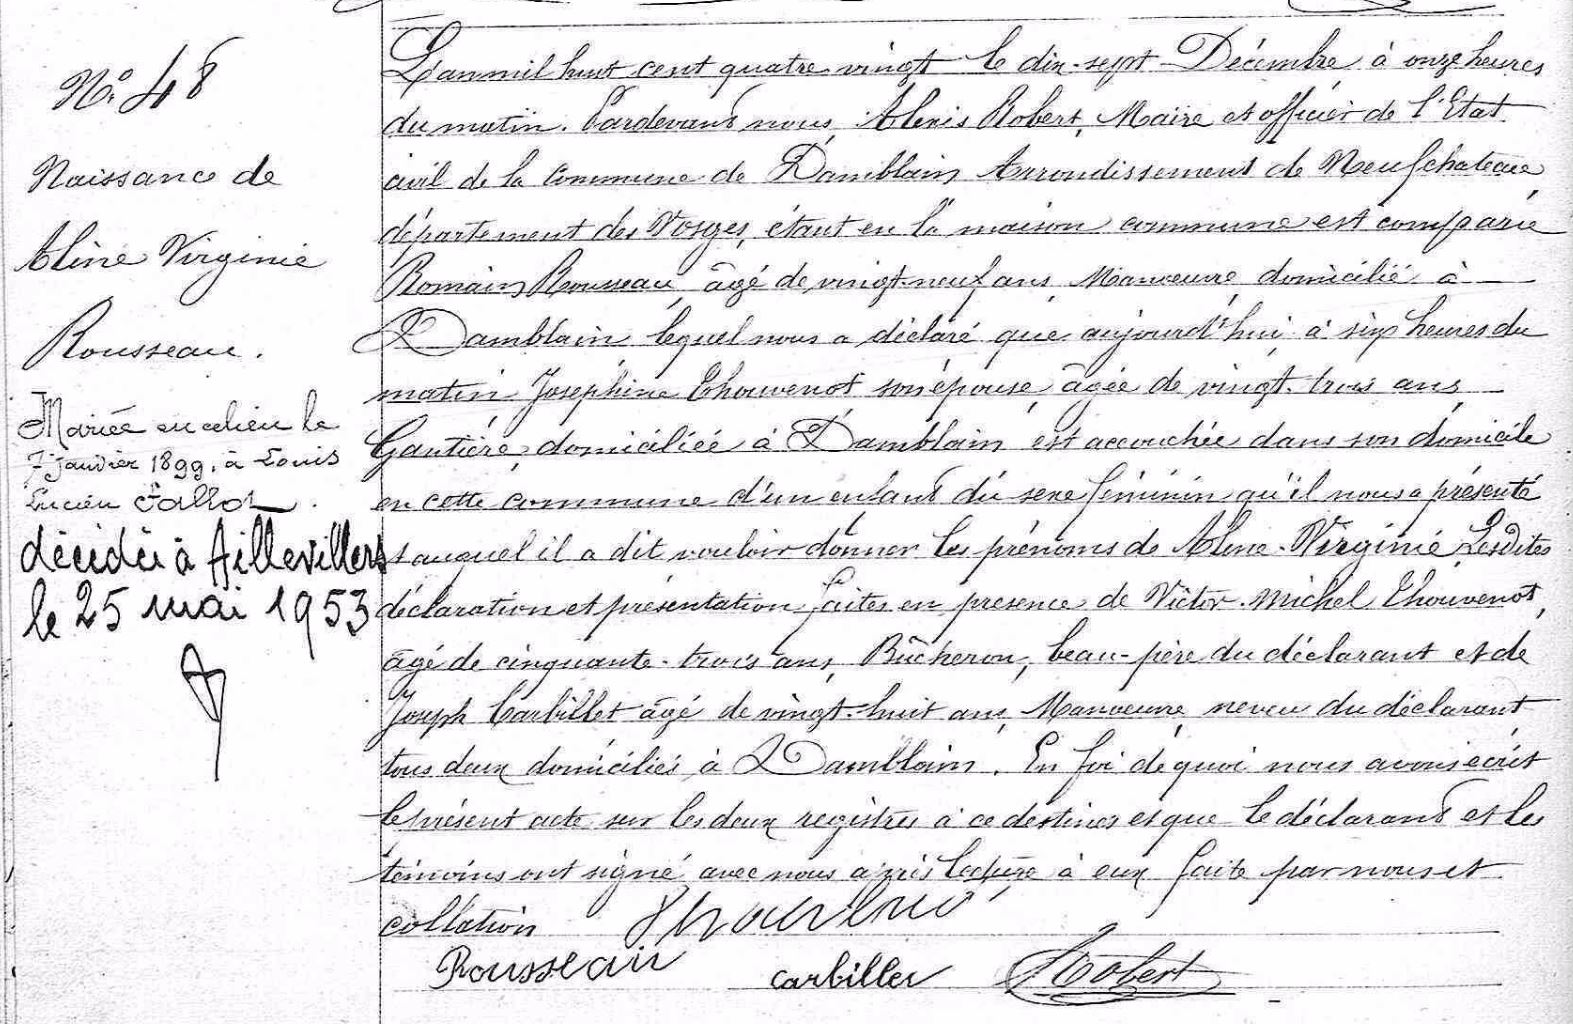 N° 48
Naissance de
Aline Virginie
Rousseau.
Mariée en ce lieu le
7 janvier 1899, à Louis
Lucien
décédée à Aillevillers
le 25 mai 1953
L'an mil huit cent quatre vingt le dix-sept Décembre à onze heures
du matin. Pardevant nous, Alexis Robert, Maire et officier de l'Etat
civil de la Commune de Damblain Arrondissement de Neufchateau,
département des Vosges, étant en la maison commune est comparu
Romain Rousseau, âgé de vingt-neuf ans, Manœuvre, domicilié à
Damblain lequel nous a déclaré que aujourd'hui à six heures du
matin Joséphine Thouvenot son épouse, âgée de vingt-trois ans,
Gantière, domiciliée à Damblain est accouchée dans son domicile
en cette commune d'un enfant du sexe féminin qu'il nous a présenté
et auquel il a dit vouloir donner les prénoms de Aline-Virginie, Lesdites
déclaration et présentation faites en présence de Victor-Michel Thouvenot,
âgé de cinquante-trois ans, Bûcheron, beau-père du déclarant et de
Joseph Carbillet âgé de vingt-huit ans, Manœuvre, neveu du déclarant
tous deux domiciliés à Damblain. En foi de quoi nous avons écrit
le présent acte sur les deux registres à ce destinés et que le déclarant et les
témoins ont signé avec nous après lecture à eux faite par nous et
collation
Rousseau carbillet Robert